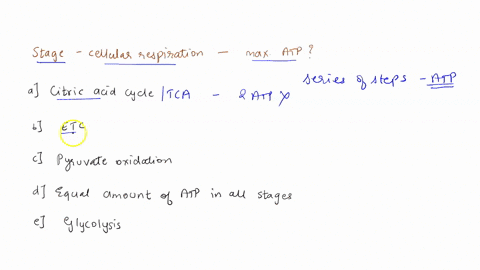 Stage - cellular respiration - max. ATP?
series of steps - ATP
a] Citric acid cycle /TCA - 2 ATP x
b] ETC
c] Pyruvate oxidation
d] Equal amount of ATP in all stages
e] Glycolysis